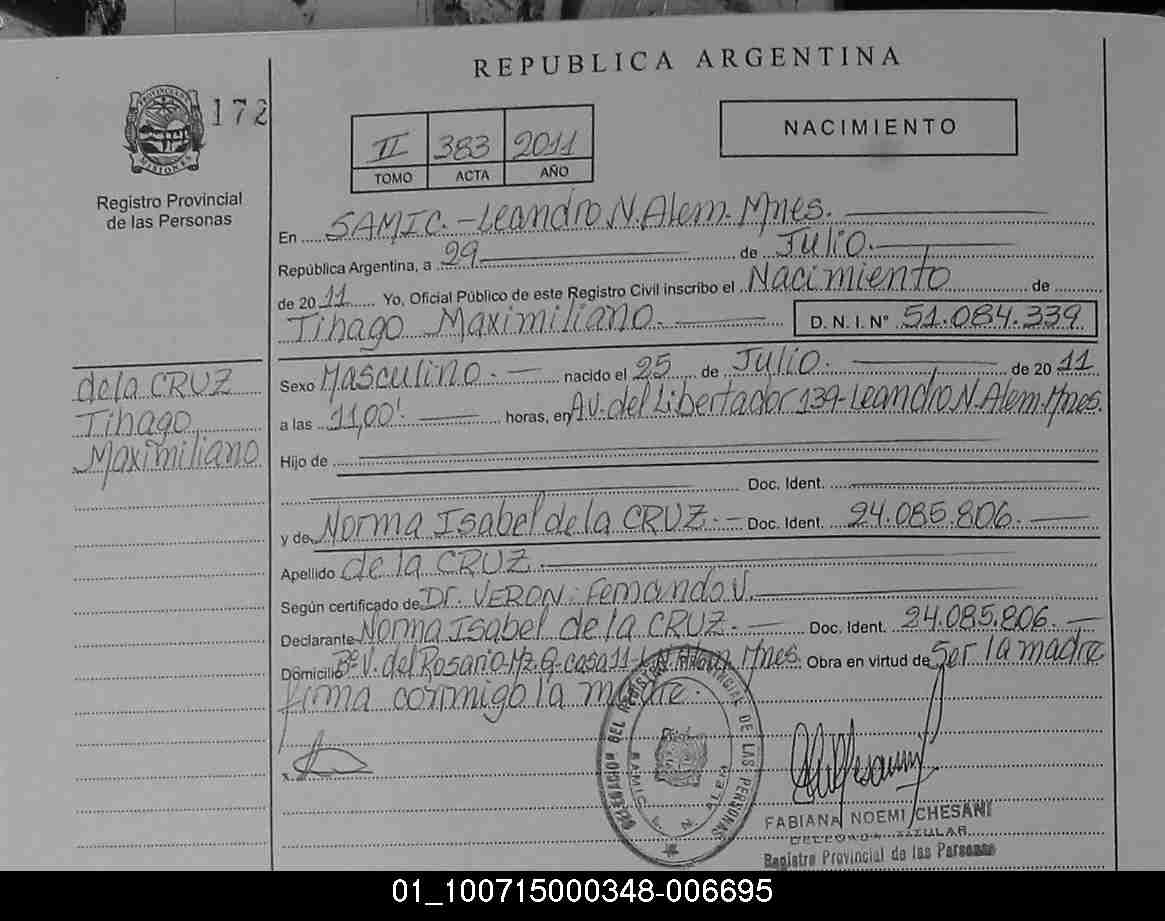 REPUBLICA ARGENTINA
PROVINCIA DE MISIONES
172
Registro Provincial
de las Personas
II 383 2011
TOMO ACTA AÑO
NACIMIENTO
En SAMIC.-Leandro N. Alem. Mnes.
República Argentina, a 29 de Julio.
de 2011 Yo, Oficial Público de este Registro Civil inscribo el Nacimiento de
Tihago Maximiliano. D. N. I. Nº 51.084.339
de la CRUZ
Tihago
Maximiliano
Sexo Masculino. nacido el 25 de Julio. de 2011
a las 11,00' horas, en AV. del Libertador 139-Leandro N. Alem. Mnes.
Hijo de
Doc. Ident.
y de Norma Isabel de la CRUZ. Doc. Ident. 24.085.806.
Apellido de la CRUZ.
Según certificado de Dr. VERON: Fernando V.
Declarante Norma Isabel de la CRUZ. Doc. Ident. 24.085.806.
Domicilio Bº V. del Rosario. Mz. Q-casa 11-L.N. Alem Mnes. Obra en virtud de Ser la madre
Firma conmigo la madre.
x
REGISTRO PROVINCIAL DE LAS PERSONAS
SAMIC L. N. ALEM
FABIANA NOEMI CHESANI
DELEGADA TITULAR
Registro Provincial de las Personas
01_100715000348-006695